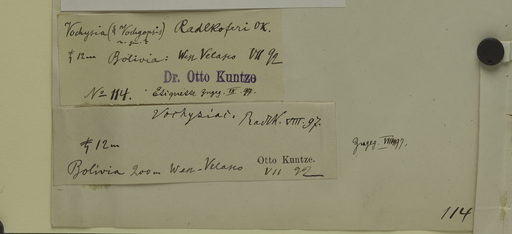 Vochysia (§ Vochyopsis) Radlkoferi OK.
n. sp.
♄ 12m Bolivia: West Velasco VII 92
Dr. Otto Kuntze
No 114. Etiquette IX 97.
Vochysiac. Radlk. VIII. 97.
♄ 12m
Bolivia 200m West-Velasco
Otto Kuntze.
VII 92
VIII 97.
114